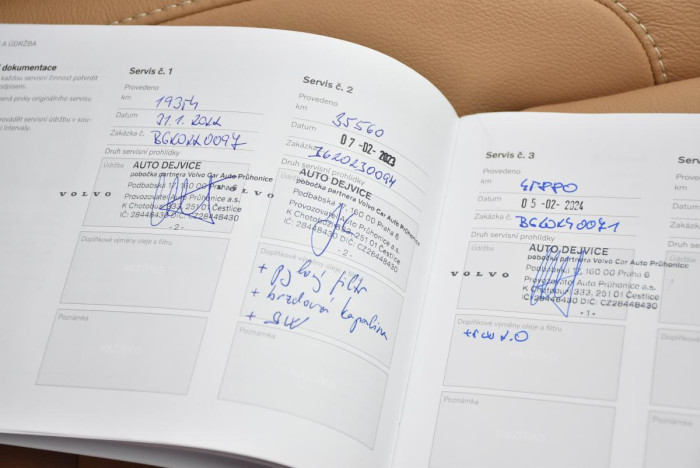 A ÚDRŽBA
í dokumentace
každou servisní činnost potvrdit
odpisem.
ená prvky originálního servisu
provádět servisní údržbu v sou-
i intervaly.
Servis č. 1
Provedeno
km
Datum
21.1. 2022
Zakázka č. BG20220097
Druh servisní prohlídky
Údržba
AUTO DEJVICE
pobočka partnera Volvo Car Auto Průhonice
Podbabská 160 00 Praha 6
Provozovatel Auto Průhonice a.s.
K Chotobuzi 333, 251 01 Čestlice
IČ: 28448430 DIČ: CZ28448430
- 2 -
VOLVO
Doplňkové výměny oleje a filtru
Poznámka
Servis č. 2
Provedeno
km
35560
Datum
07-02-2023
Zakázka
BG20230094
Druh servisní prohlídky
Údržba
AUTO DEJVICE
pobočka partnera Volvo Car Auto Průhonice
Podbabská 160 00 Praha 6
Provozovatel Auto Průhonice a.s.
K Chotobuzi 333, 251 01 Čestlice
IČ: 28448430 DIČ: CZ28448430
- 2 -
VOLVO
Doplňkové výměny oleje a filtru
+ pylový filtr
+ brzdová kapalina
+ SW
Poznámka
Servis č. 3
Provedeno
km
Datum
05-02-2024
Zakázka č. BG20240071
Druh servisní prohlídky
Údržba
AUTO DEJVICE
pobočka partnera Volvo Car Auto Průhonice
160 00 Praha 6
Provozovatel Auto Průhonice a.s.
K Chotobuzi 333, 251 01 Čestlice
IČ: 28448430 DIČ: CZ28448430
- 1 -
VOLVO
Doplňkové výměny oleje a filtru
Poznámka
Servis
Provedeno
km
Datum
Zakázka
Druh
Údržba
Doplňkov
Poznám